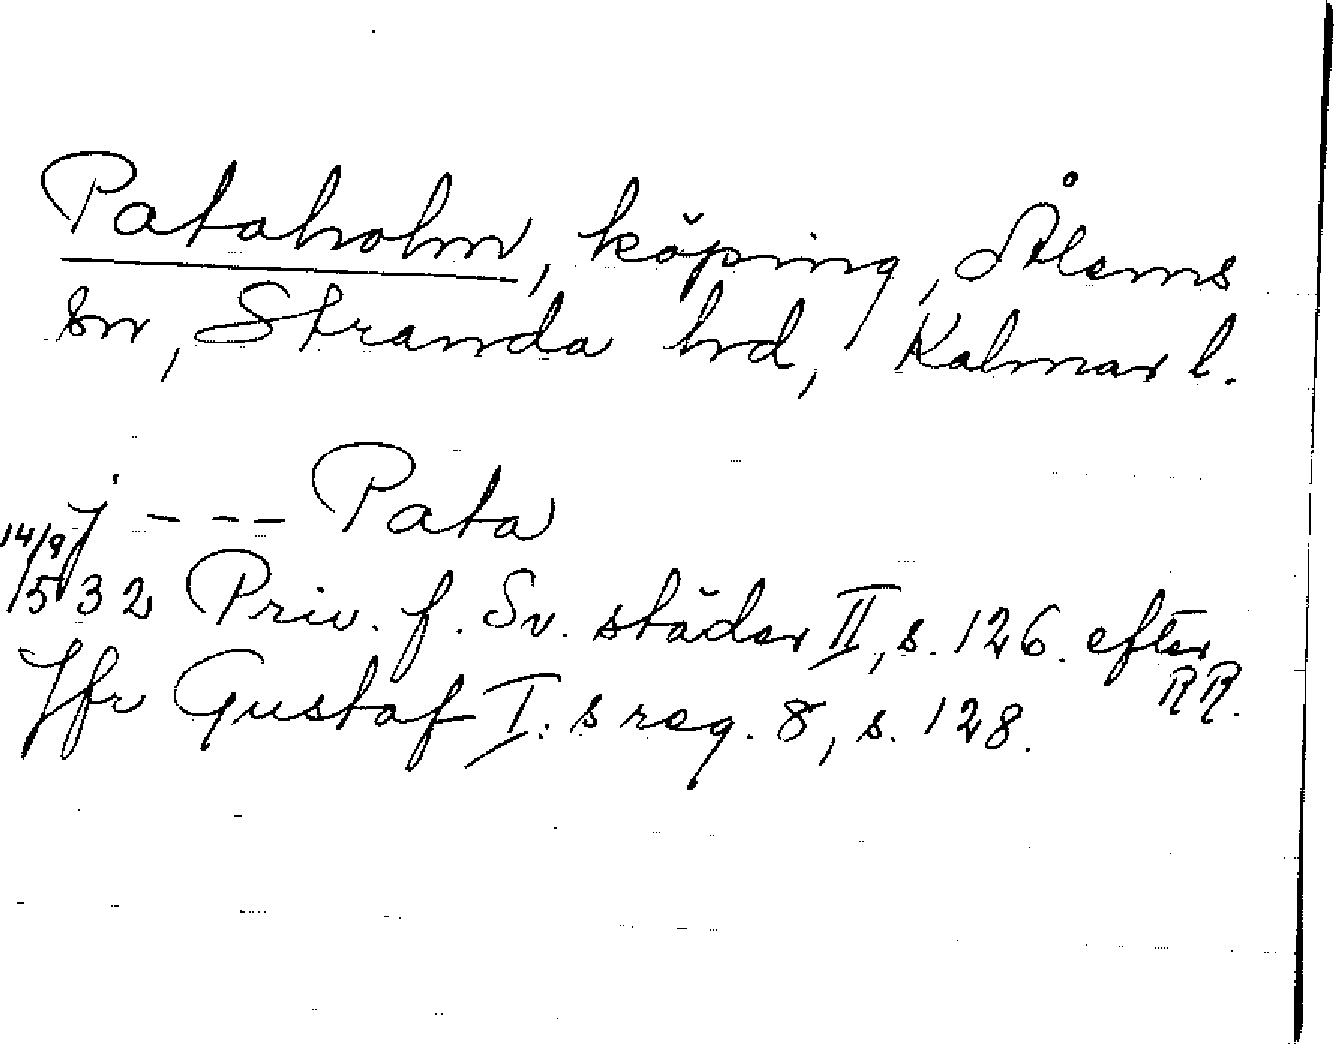 Pataholm, köping, Ålems
sn, Stranda hd, Kalmar l.
j --- Pata
14/9 1532 Priv. f. Sv. städer II, s. 126. efter RR.
Jfr Gustaf I:s reg. 8, s. 128.